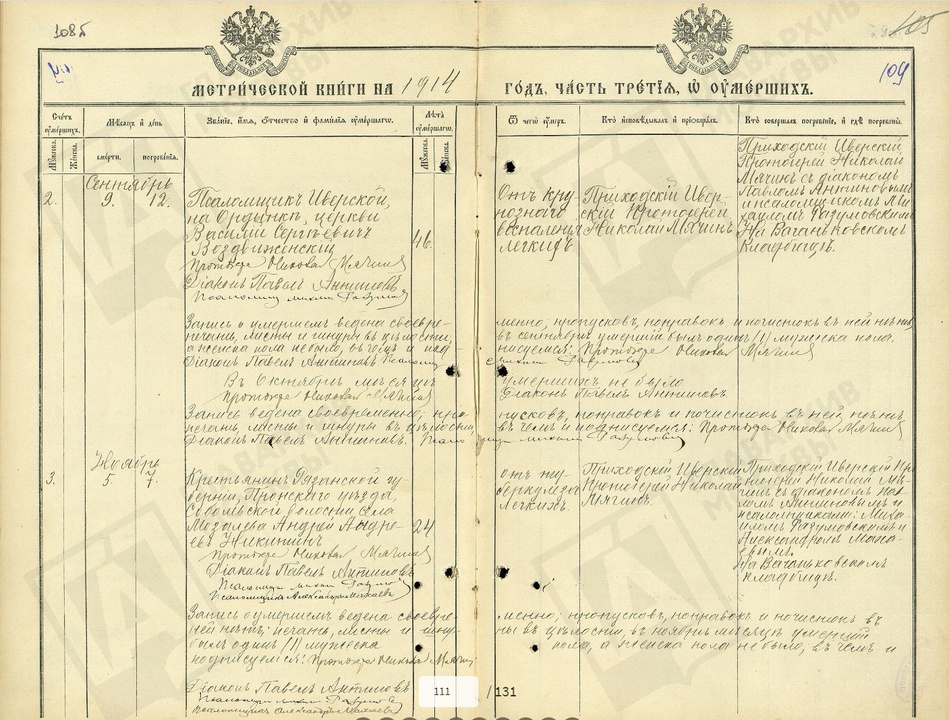 1085
105
109
МЕТРИЧЕСКОЙ КНИГИ НА 1914 ГОДЪ, ЧАСТЬ ТРЕТІЯ, Ѡ ОУМЕРШИХЪ.
Счетъ оумершихъ.
Мужеска.
Женска.
Мѣсяцъ и день
смерти.
погребенія.
Званіе, имя, отчество и фамилія оумершаго.
Лѣта оумершаго.
Мужска.
Женска.
Ѿ чего оумеръ.
Кто исповѣдывалъ и пріобщалъ.
Кто совершалъ погребеніе, и гдѣ погребены.
Сентябрь
2.
9.
12.
Псаломщикъ Иверской,
на Ордынкѣ, церкви
Василий Сергѣевичъ
Воздвиженскій
46.
Протоіерей Николай Мячинъ
Діаконъ Павелъ Антиповъ
Псаломщ. Михаил Разумовскій
Отъ кру
познаго
воспаленія
легкихъ
Приходскій Ивер
скій Протоіерей
Николай Мячинъ
Приходскій Иверскій
Протоіерей Николай
Мячинъ съ діакономъ
Павломъ Антиповымъ
и псаломщикомъ Ми
хаиломъ Разумовскимъ
На Ваганьковскомъ
Кладбищѣ.
Запись о умершемъ ведена своевре-
менно; пропусковъ, поправокъ и почистокъ въ ней нѣтъ,
печать, листы и шнуры въ цѣлости,
въ сентябрѣ умершій былъ одинъ (1) мужеска пола.
а женска пола не было, въ чемъ и под-
писуемся: Протоіерей Николай Мячинъ
Діаконъ Павелъ Антиповъ Псаломщ. Михаил Разумовскій
Въ Октябрѣ мѣсяцѣ умершихъ не было
Протоіерей Николай Мячинъ Діаконъ Павелъ Антиповъ
Запись ведена своевременно; про-
пусковъ, поправокъ и почистокъ въ ней нѣтъ
печать, листы и шнуры въ цѣлости,
въ чемъ и подписуемся: Протоіерей Николай Мячинъ
Діаконъ Павелъ Антиповъ. Псаломщикъ Михаил Разумовскій
Ноябрь
3.
5.
7.
Крестьянинъ Рязанской гу-
берніи, Пронскаго уѣзда,
волости села
Андрей Андре-
евъ Никитинъ
24
Протоіерей Николай Мячинъ
Діаконъ Павелъ Антиповъ
Псаломщ. Михаил Разумовскій
Псаломщикъ Александръ Махаевъ
отъ ту-
беркулеза
легкихъ.
Приходскій Иверскій
Протоіерей Николай
Мячинъ.
Приходскій Иверскій Про
тоіерей Николай Мя-
чинъ съ діакономъ Пав
ломъ Антиповымъ и
псаломщиками: Миха
иломъ Разумовскимъ и
Александромъ Маха-
евымъ.
На Ваганьковскомъ
кладбищѣ.
Запись о умершемъ ведена своевре-
менно; пропусковъ, поправокъ и почистокъ въ
ней нѣтъ; печать, листы и шну-
ры въ цѣлости, въ ноябрѣ мѣсяцѣ умершій
былъ одинъ (1) мужеска
пола, а женска пола не было, въ чемъ и
подписуемся: Протоіерей Николай Мячинъ
Діаконъ Павелъ Антиповъ
Псаломщ. Михаил Разумовскій
Псаломщикъ Александръ Махаевъ
111 / 131